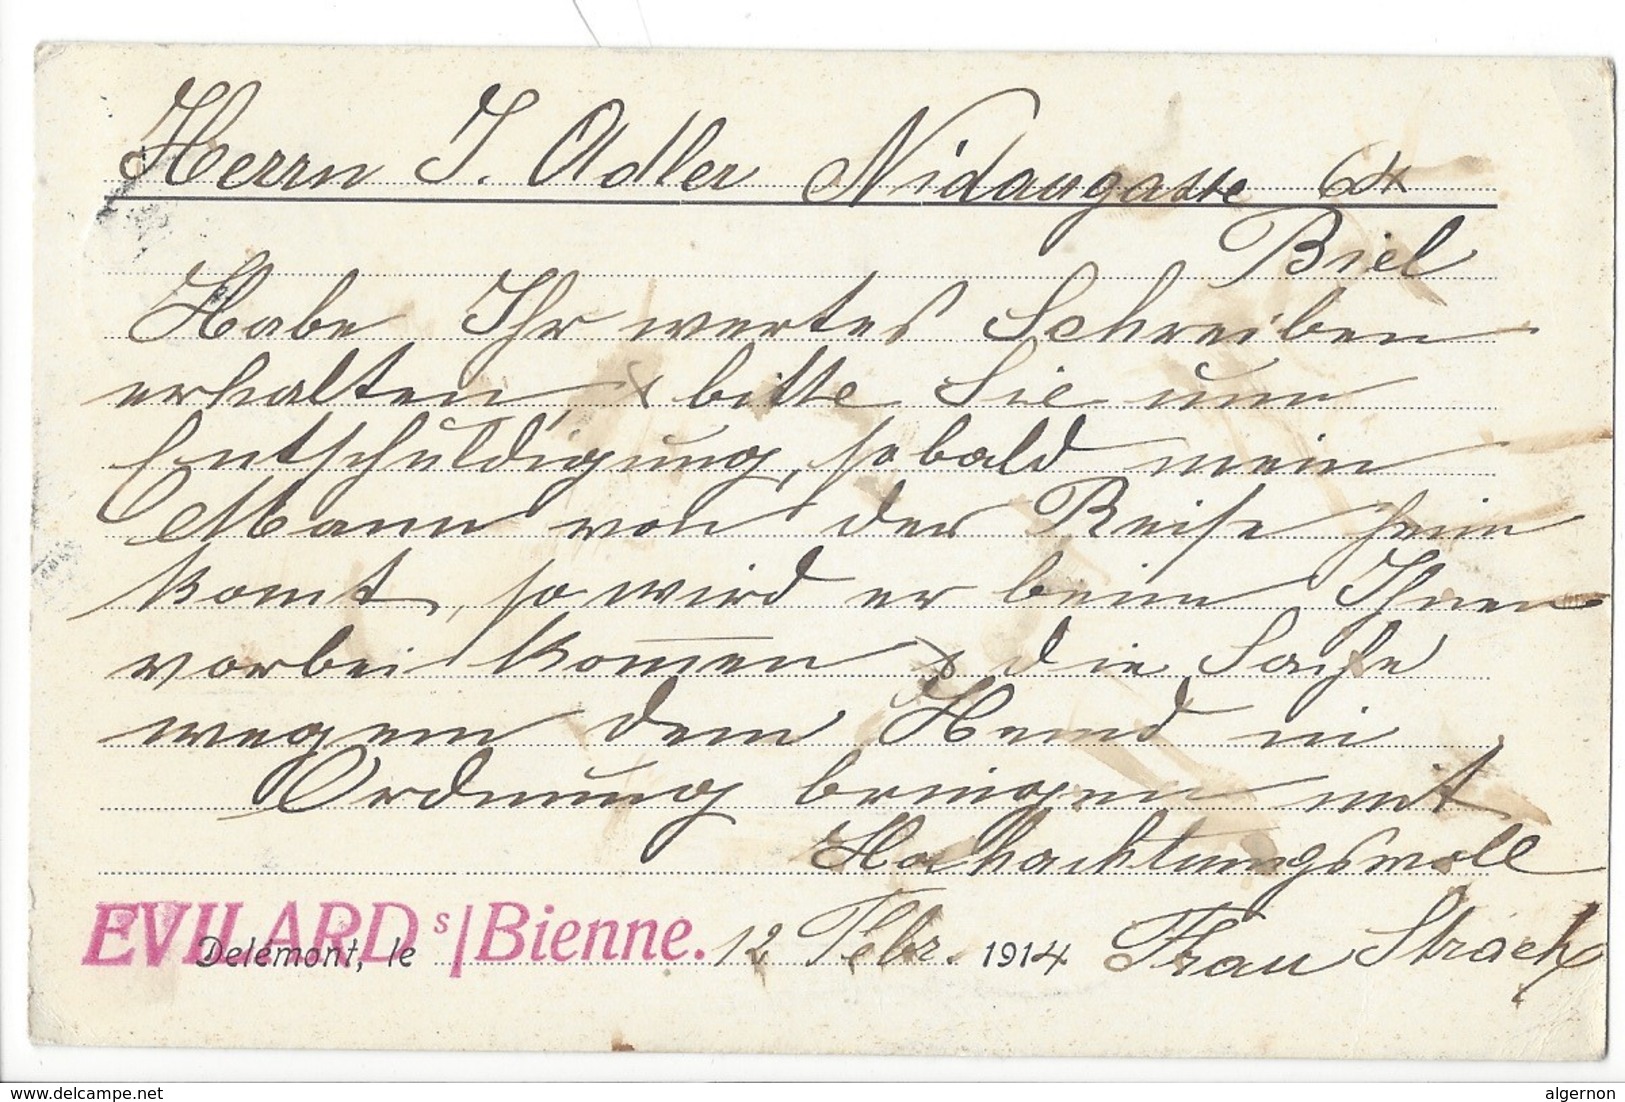 Herrn J. Adler Nidaugasse 64
Biel
Habe Ihr wertes Schreiben
erhalten, & bitte Sie um
Entschuldigung, sobald mein
Mann von der Reise heim
komt, so wird er beim Ihnen
vorbei kom̅en & die Sache
wegem dem Hemd in
Ordnung bringen mit
Hochachtungsvoll
EVILARD s/Bienne.
Delémont, le 12 Febr. 1914 Frau Strach
www.delcampe.net
algernon